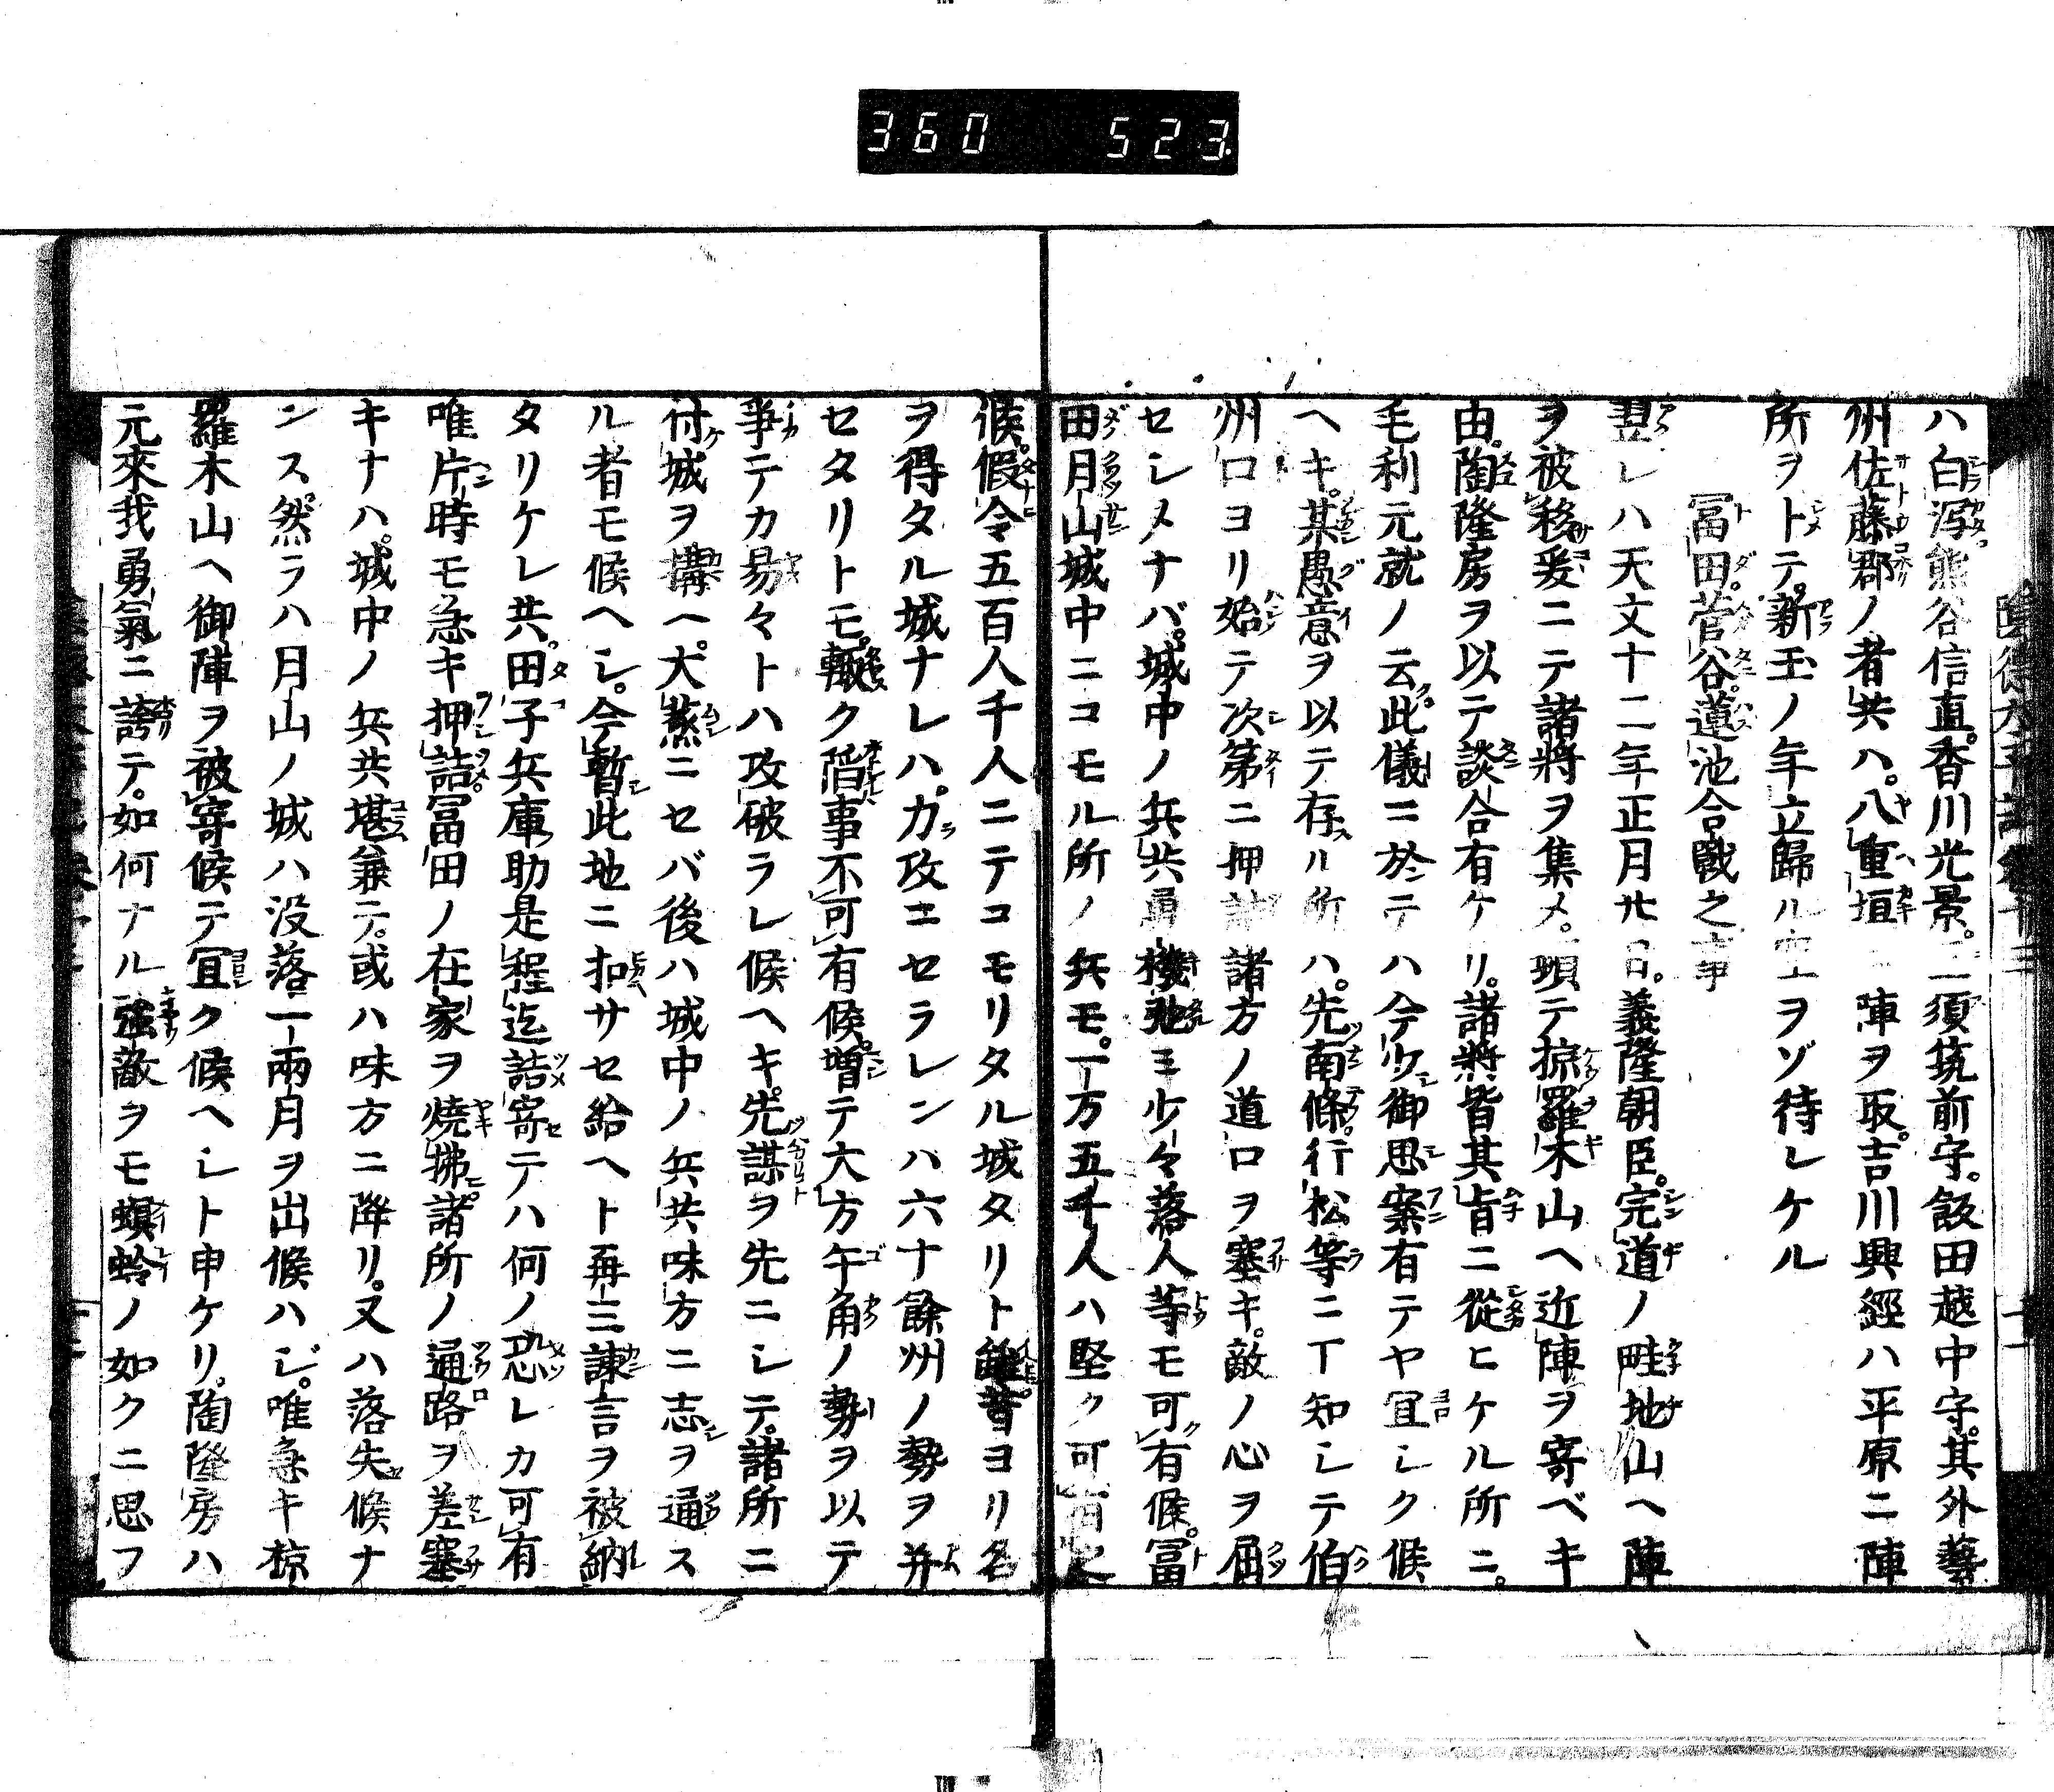 360 523
ハ白滘熊谷信直。香川光景。二須筑前守。飯田越中守。其外藝
州佐藤郡ノ者共ハ。八重垣ニ陣ヲ取。吉川興經ハ平原ニ陣
所ヲトテ。新玉ノ年立歸ル空ヲゾ待レケル
冨田。菅谷。蓮池合戰之事
翌レハ天文十二年正月廿日。義隆朝臣。完道ノ畦地山ヘ陣
ヲ被移爰ニテ諸將ヲ集メ。頓テ掠羅木山ヘ近陣ヲ寄ベキ
由。陶隆房ヲ以テ談合有ケリ。諸將皆其旨ニ從ヒケル所ニ。
毛利元就ノ云。此儀ニ於テハ今少御思案有テヤ冝レク候
ヘキ。某愚意ヲ以テ存ル所ハ。先南條。行松等ニ丁知レテ伯
州口ヨリ始テ次第ニ押詰諸方ノ道口ヲ塞キ。敵ノ心ヲ屈
セレメナバ。城中ノ兵共勇機弛ミ少々落人等モ可有候。冨
田月山城中ニコモル所ノ兵モ。一万五千人ハ堅ク可有之
候。假令五百人千人ニテコモリタル城タリト雖。昔ヨリ名
ヲ得タル城ナレハ。力攻エセラレンハ六十餘州ノ勢ヲ并
セタリトモ。輙ク陷事不可有候。増テ大方午角ノ勢ヲ以テ
爭テカ易々トハ攻破ラレ候ヘキ。先謀ヲ先ニレテ。諸所ニ
付城ヲ搆ヘ。大蒸ニセバ後ハ城中ノ兵共味方ニ志ヲ通ス
ル者モ候ヘレ。今暫此地ニ扣サセ給ヘト再三諫言ヲ被納
タリケレ共。田子兵庫助是程迄詰寄テハ何ノ恐レカ可有
唯片時モ急キ押詰。冨田ノ在家ヲ燒拂。諸所ノ通路ヲ差塞
キナハ。城中ノ兵共堪兼テ。或ハ味方ニ降リ。又ハ落失候ナ
ンス。然ラハ月山ノ城ハ没落一兩月ヲ出候ハジ。唯急キ掠
羅木山ヘ御陣ヲ被寄候テ冝ク候ヘレト申ケリ。陶隆房ハ
元來我勇氣ニ誇テ。如何ナル強敵ヲモ螟蛉ノ如クニ思フ